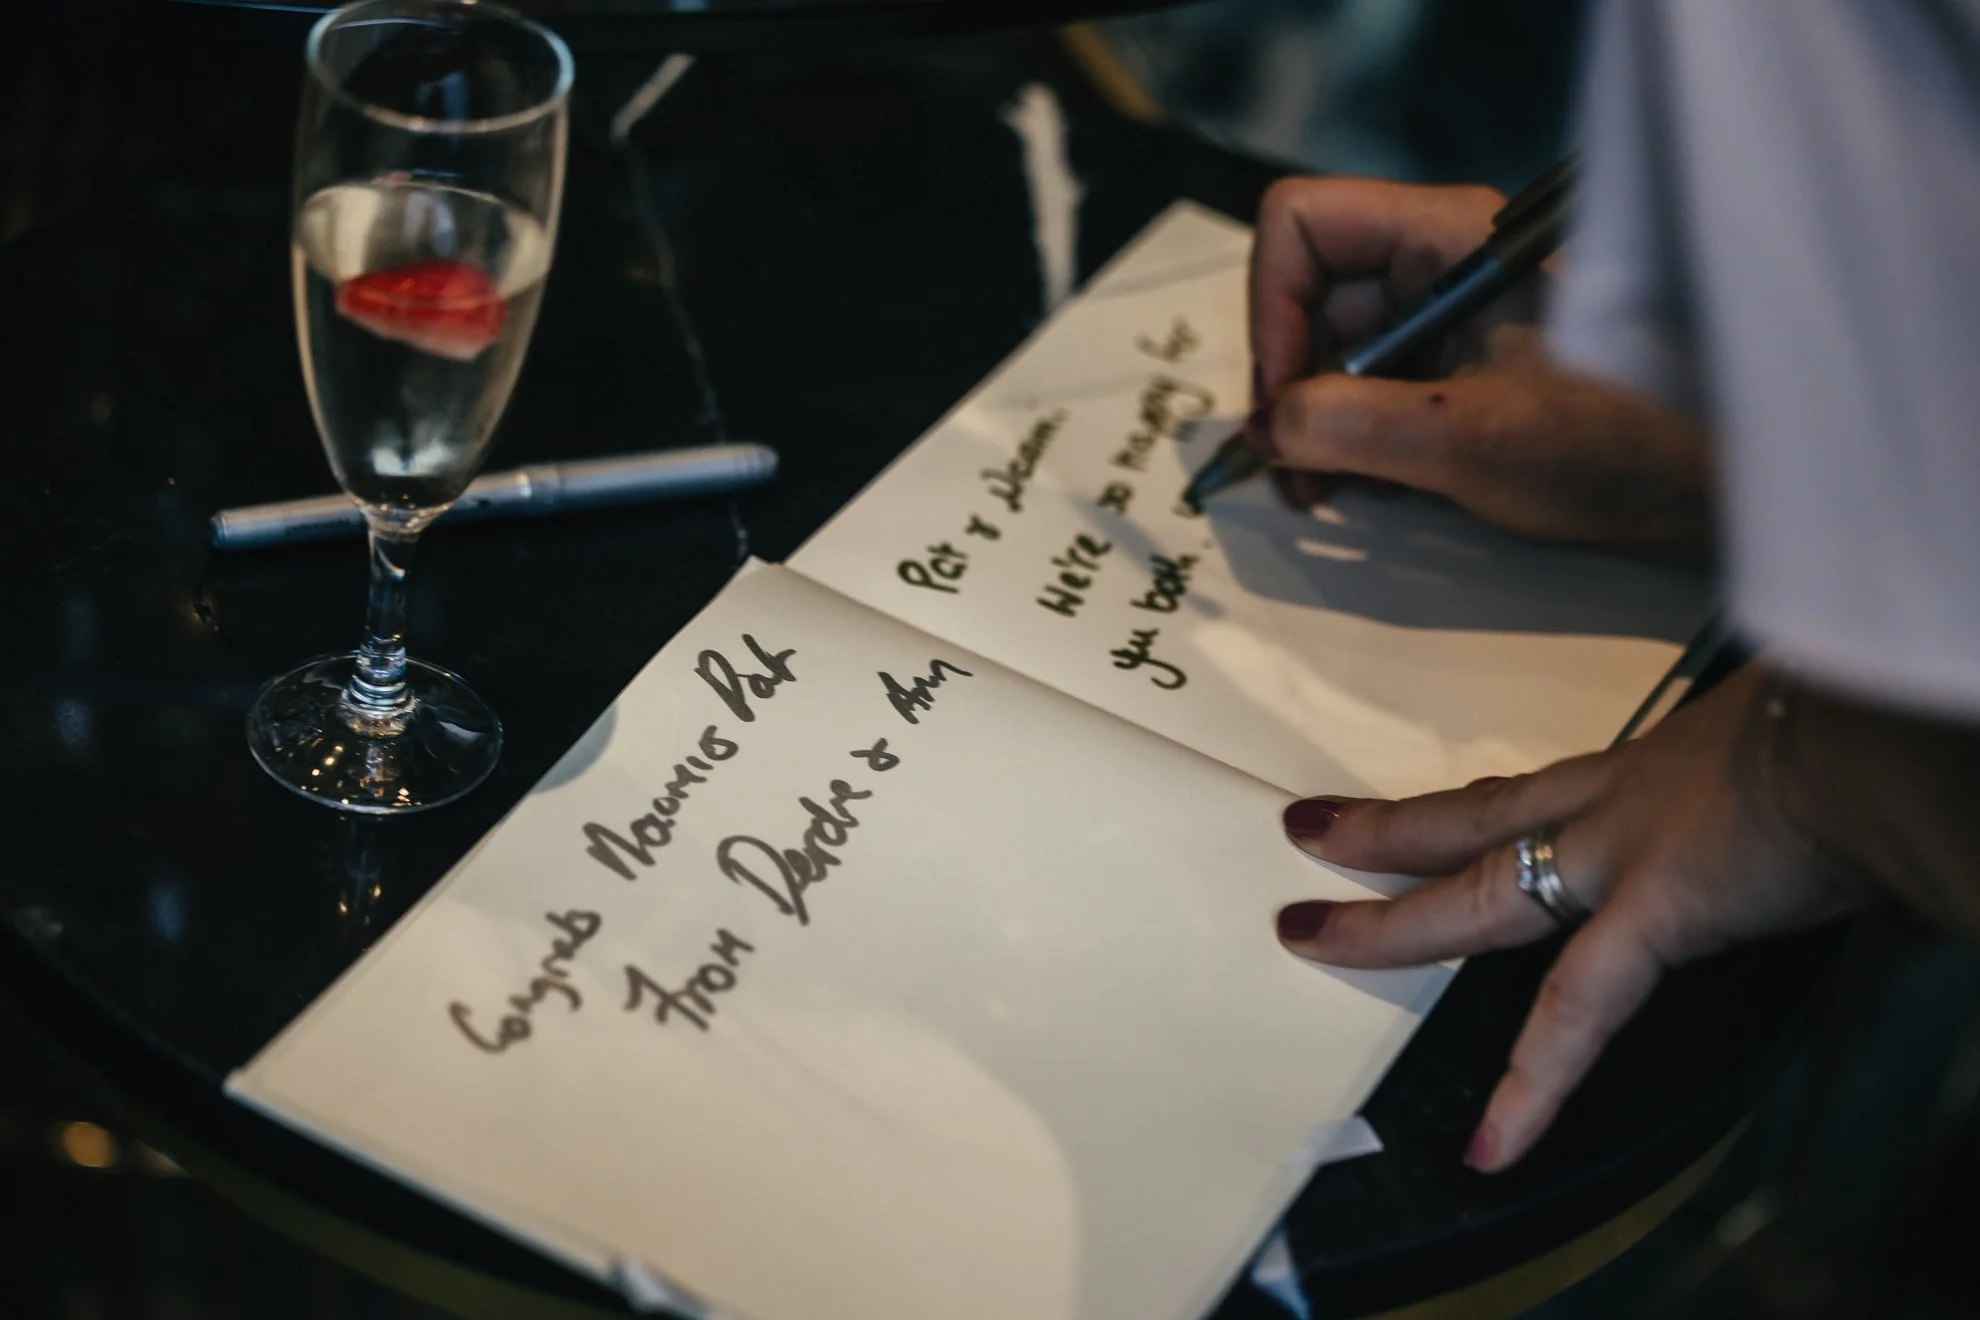 Congrats Naomi & Pat
From Deirdre & Ann
Pat & Naomi.
We're so happy for
you both.